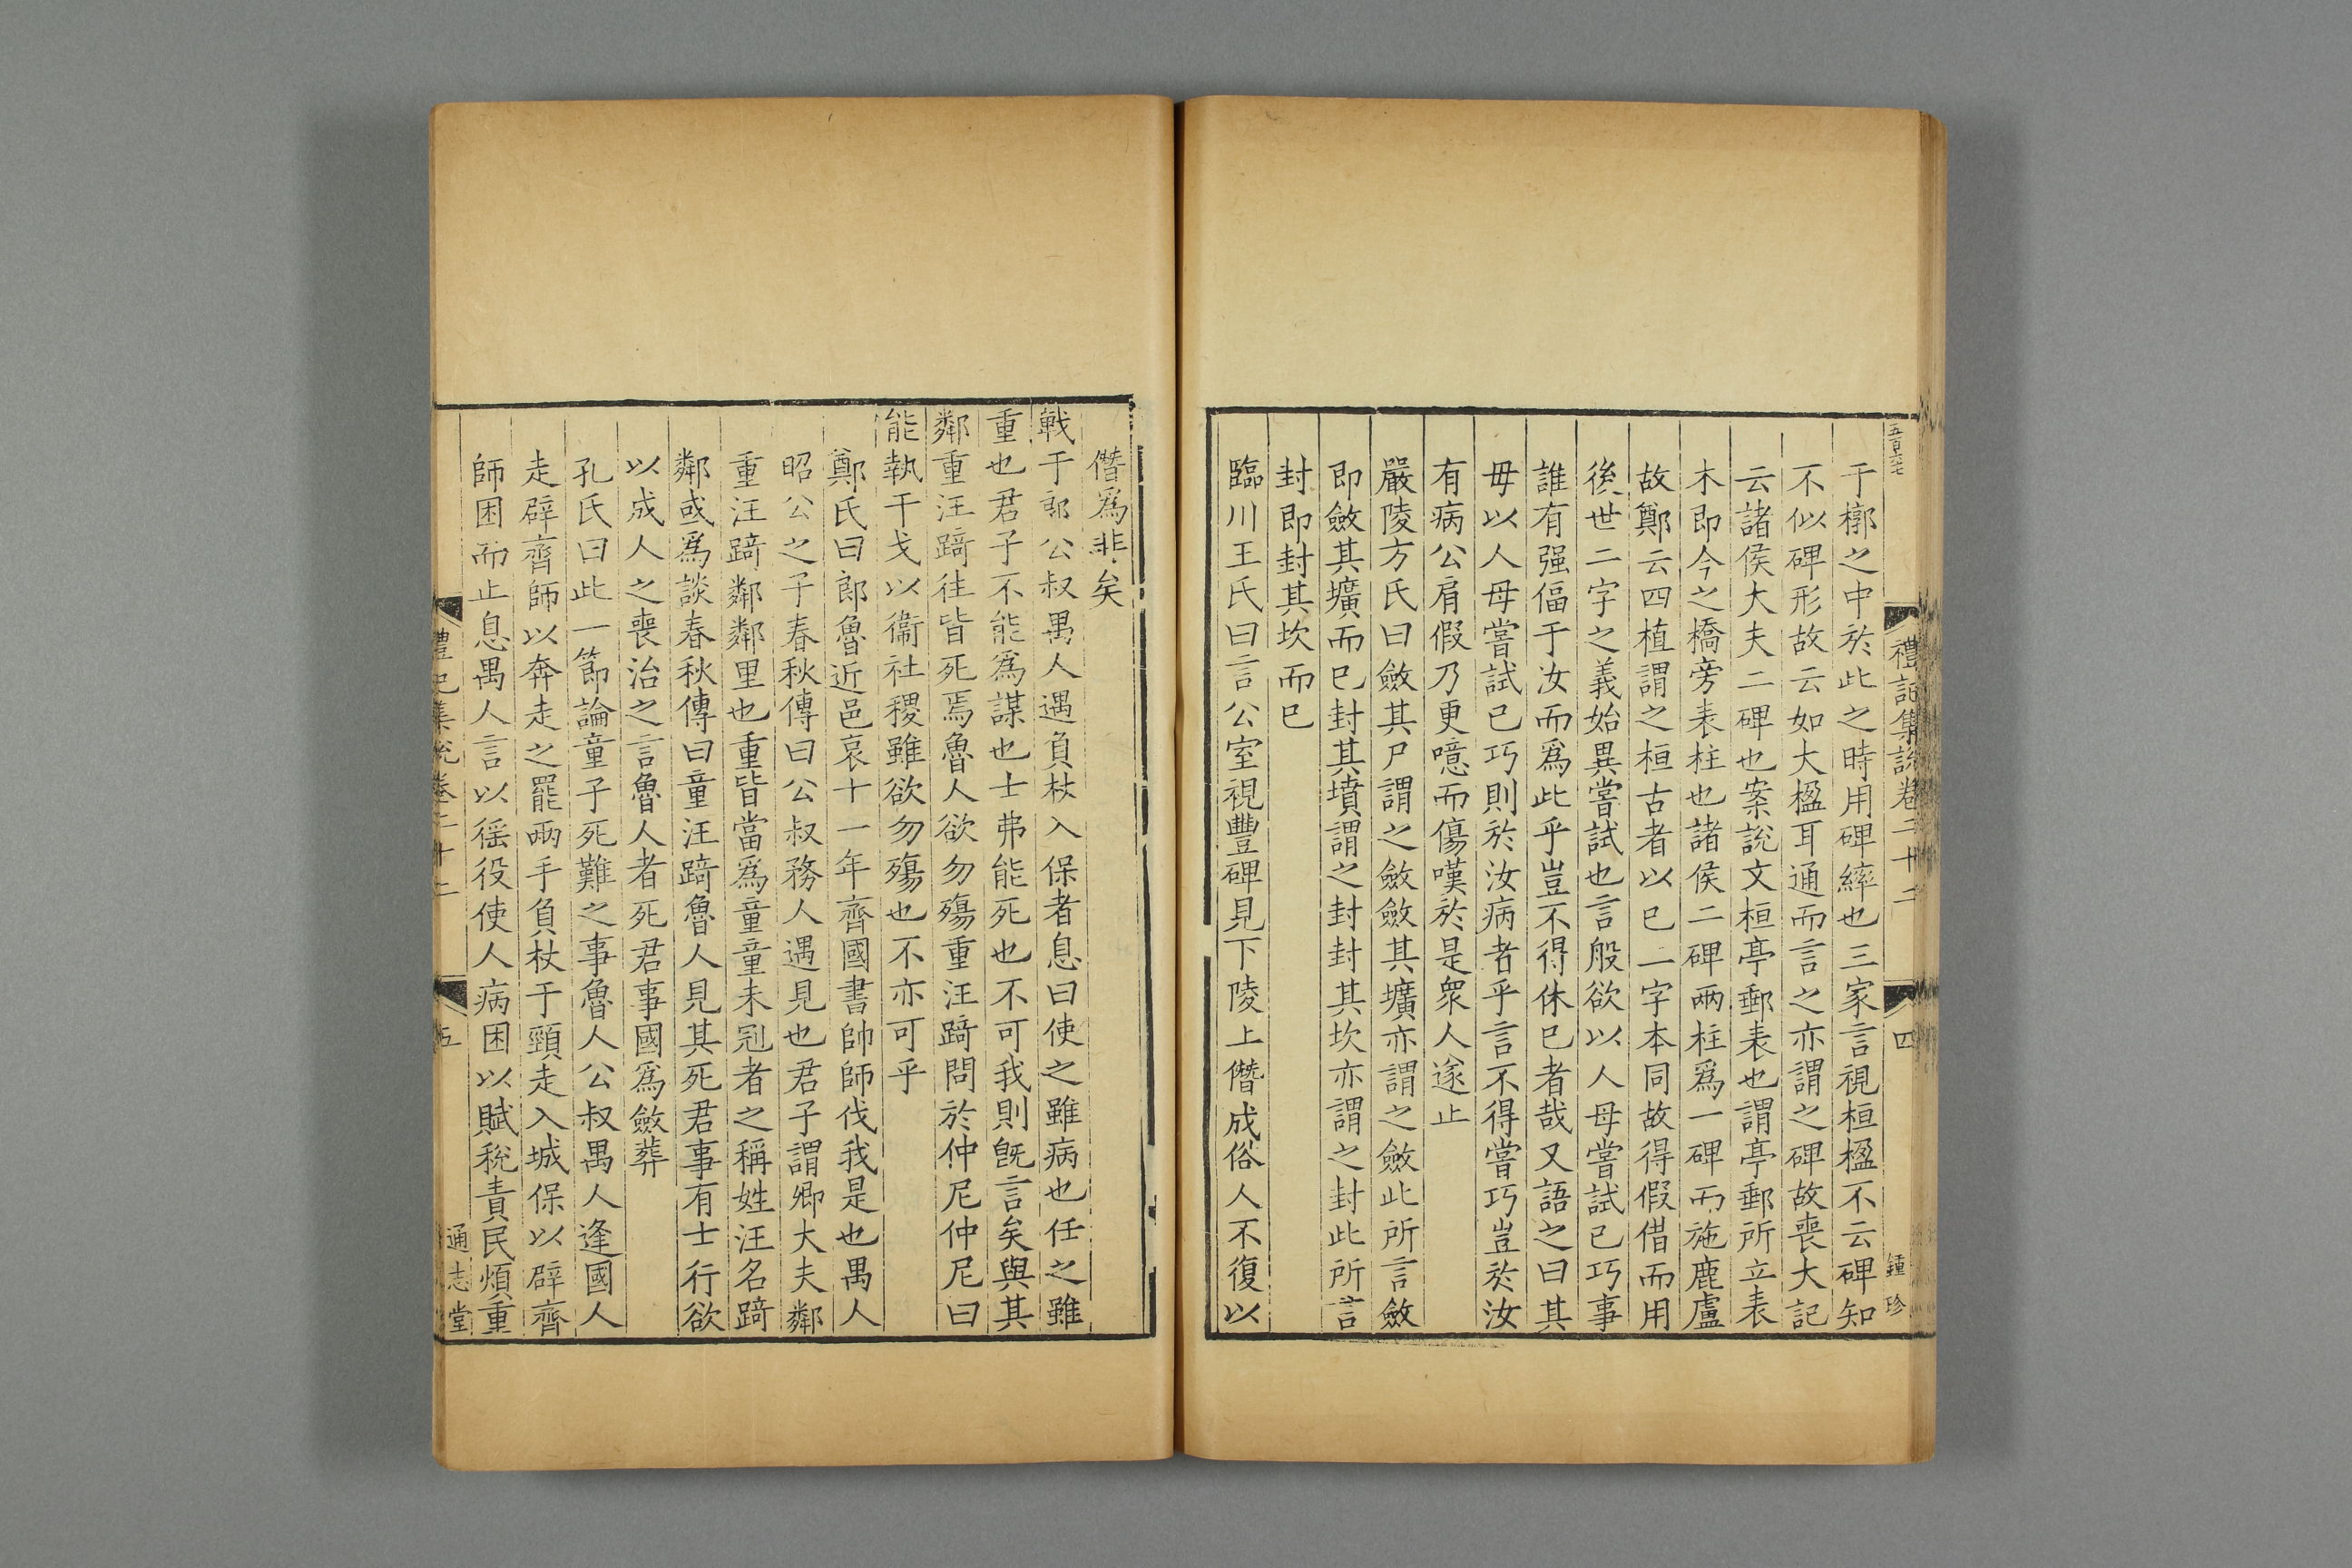 五百六七
禮記集說卷二十二
四
鍾珍
于槨之中於此之時用碑繂也三家言視桓楹不云碑知
不似碑形故云如大楹耳通而言之亦謂之碑故喪大記
云諸侯大夫二碑也案說文桓亭郵表也謂亭郵所立表
木即今之橋旁表柱也諸侯二碑兩柱爲一碑而施鹿盧
故鄭云四植謂之桓古者以巳二字本同故得假借而用
後世二字之義始異嘗試也言般欲以人母嘗試巳巧事
誰有强偪于汝而爲此乎豈不得休巳者哉又語之曰其
毋以人母嘗試巳巧則於汝病者乎言不得嘗巧豈於汝
有病公肩假乃更噫而傷嘆於是衆人遂止
嚴陵方氏曰斂其尸謂之斂斂其壙亦謂之斂此所言斂
即斂其壙而巳封其墳謂之封封其坎亦謂之封此所言
封即封其坎而巳
臨川王氏曰言公室視豐碑見下陵上僭成俗人不復以
僭爲非矣
戰于郎公叔禺人遇負杖入保者息曰使之雖病也任之雖
重也君子不能爲謀也士弗能死也不可我則旣言矣與其
鄰重汪踦往皆死焉魯人欲勿殤重汪踦問於仲尼仲尼曰
能執干戈以衞社稷雖欲勿殤也不亦可乎
鄭氏曰郎魯近邑哀十一年齊國書帥師伐我是也禺人
昭公之子春秋傳曰公叔務人遇見也君子謂卿大夫鄰
重汪踦鄰鄰里也重皆當爲童童未冠者之稱姓汪名踦
鄰或爲談春秋傳曰童汪踦魯人見其死君事有士行欲
以成人之喪治之言魯人者死君事國爲斂葬
孔氏曰此一節論童子死難之事魯人公叔禺人逢國人
走辟齊師以奔走之罷兩手負杖于頸走入城保以辟齊
師困而止息禺人言以徭役使人病困以賦稅責民煩重
禮記集說卷二十二
五
通志堂